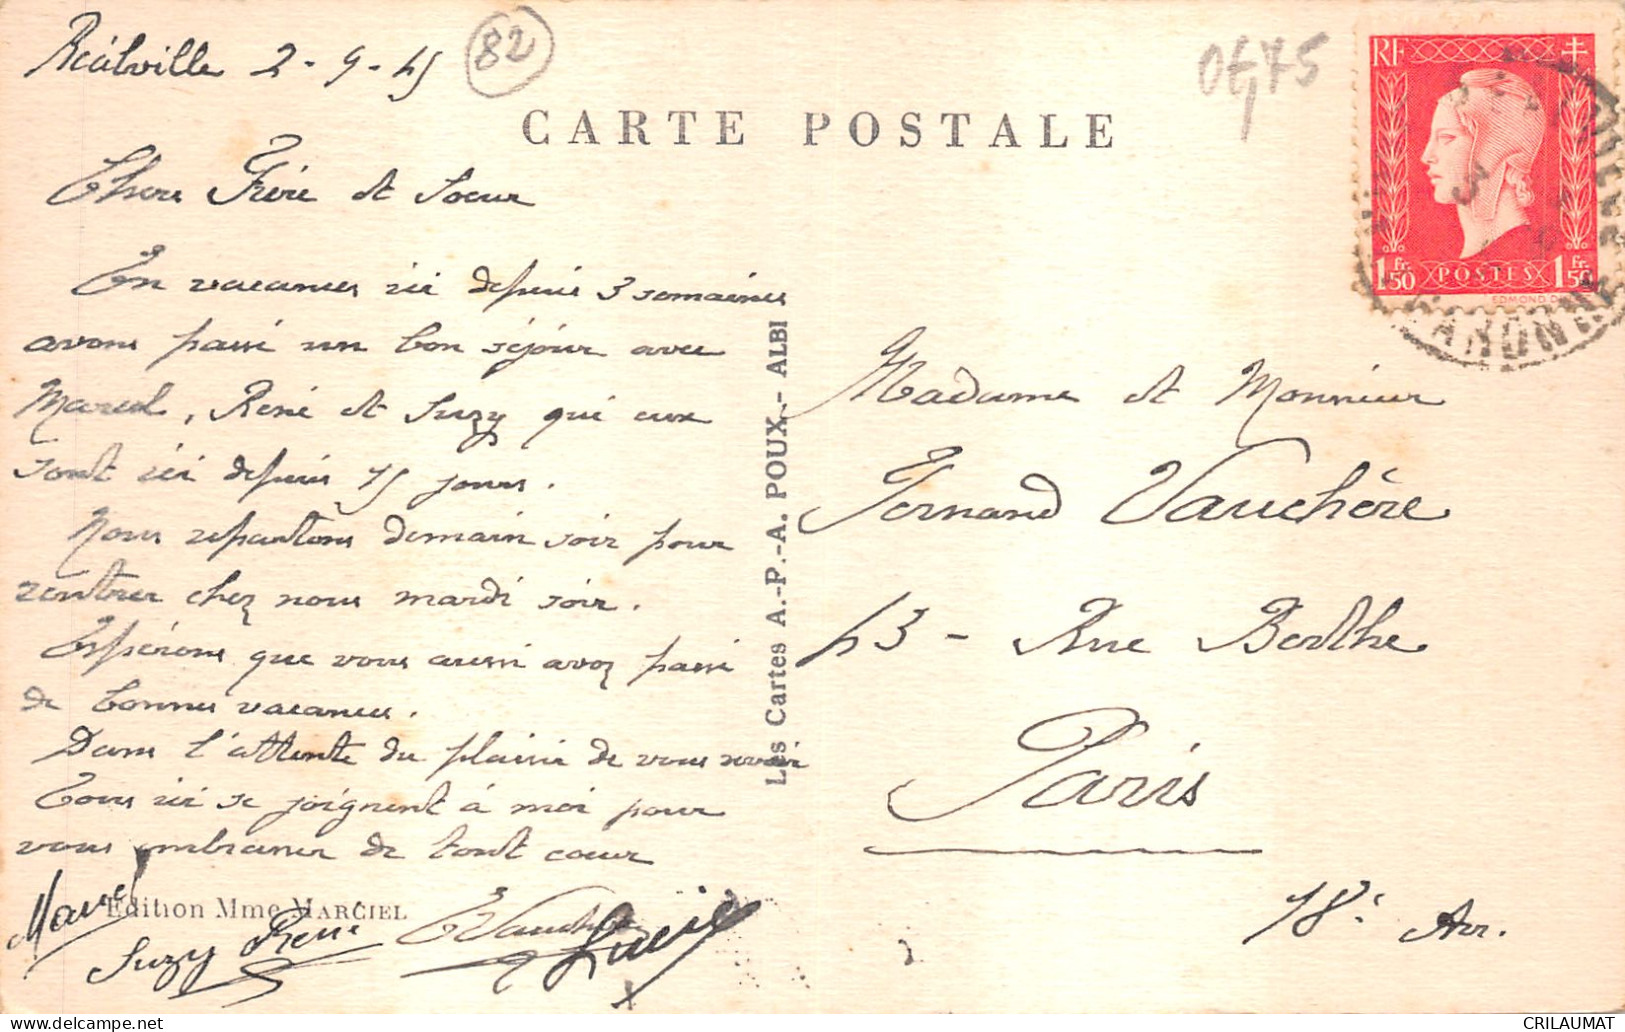 Réalville 2-9-45
82
0€,75
CARTE POSTALE
RF
1 Fr. 50
POSTES
1 Fr. 50
EDMOND D
Chers Frère et Soeur
En vacances ici depuis 3 semaines
avons passé un bon séjour avec
Marcel, René et Suzy qui eux
sont ici depuis 15 jours.
Nous repartons demain soir pour
rentrer chez nous mardi soir.
Espérons que vous aussi avez passé
de bonnes vacances.
Dans l'attente du plaisir de vous revoir
Tous ici se joignent à moi pour
vous embrasser de tout coeur
Marcel
Suzy René
Lucie
Edition Mme MARCIEL
Les Cartes A.-P.-A. POUX.- ALBI
Madame et Monsieur
Fernand Vauchère
43 - Rue Berthe
Paris
18è Arr.
CRILAUMAT